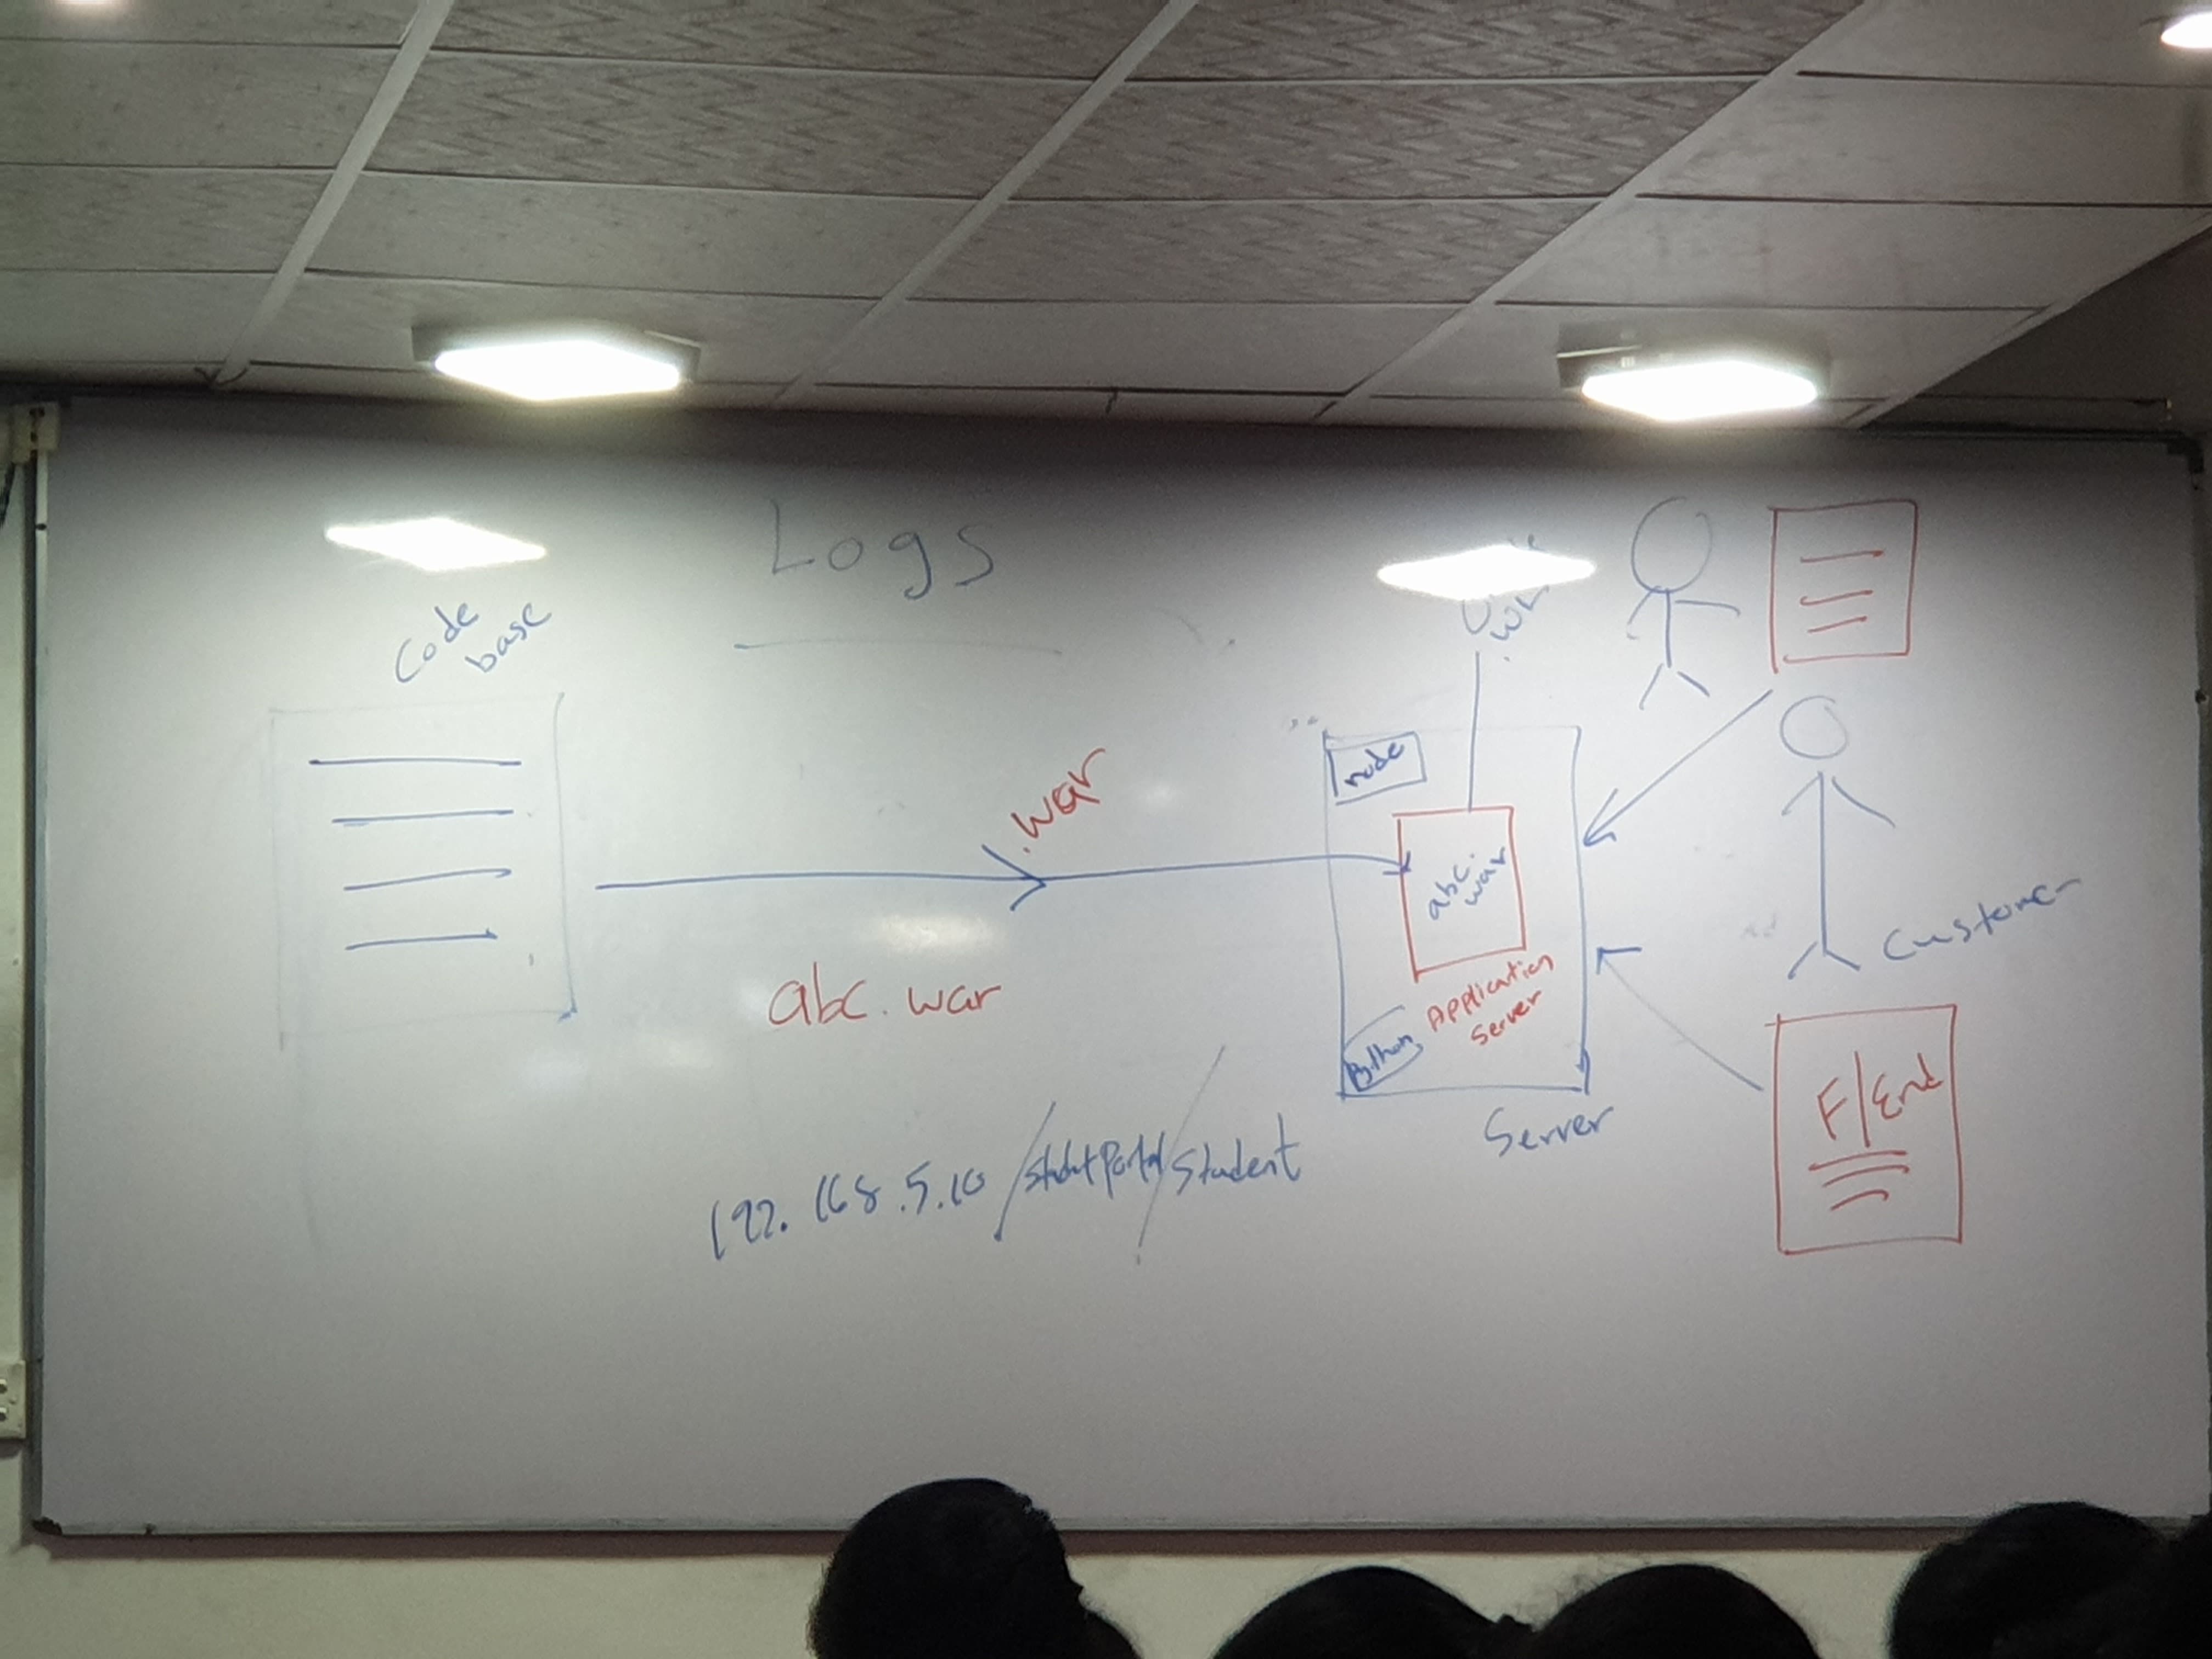 Logs
Code
base
.war
abc.war
node
abc.
war
Application
Server
Python
Server
Customer
F/End
192.168.5.10/studentportal/student